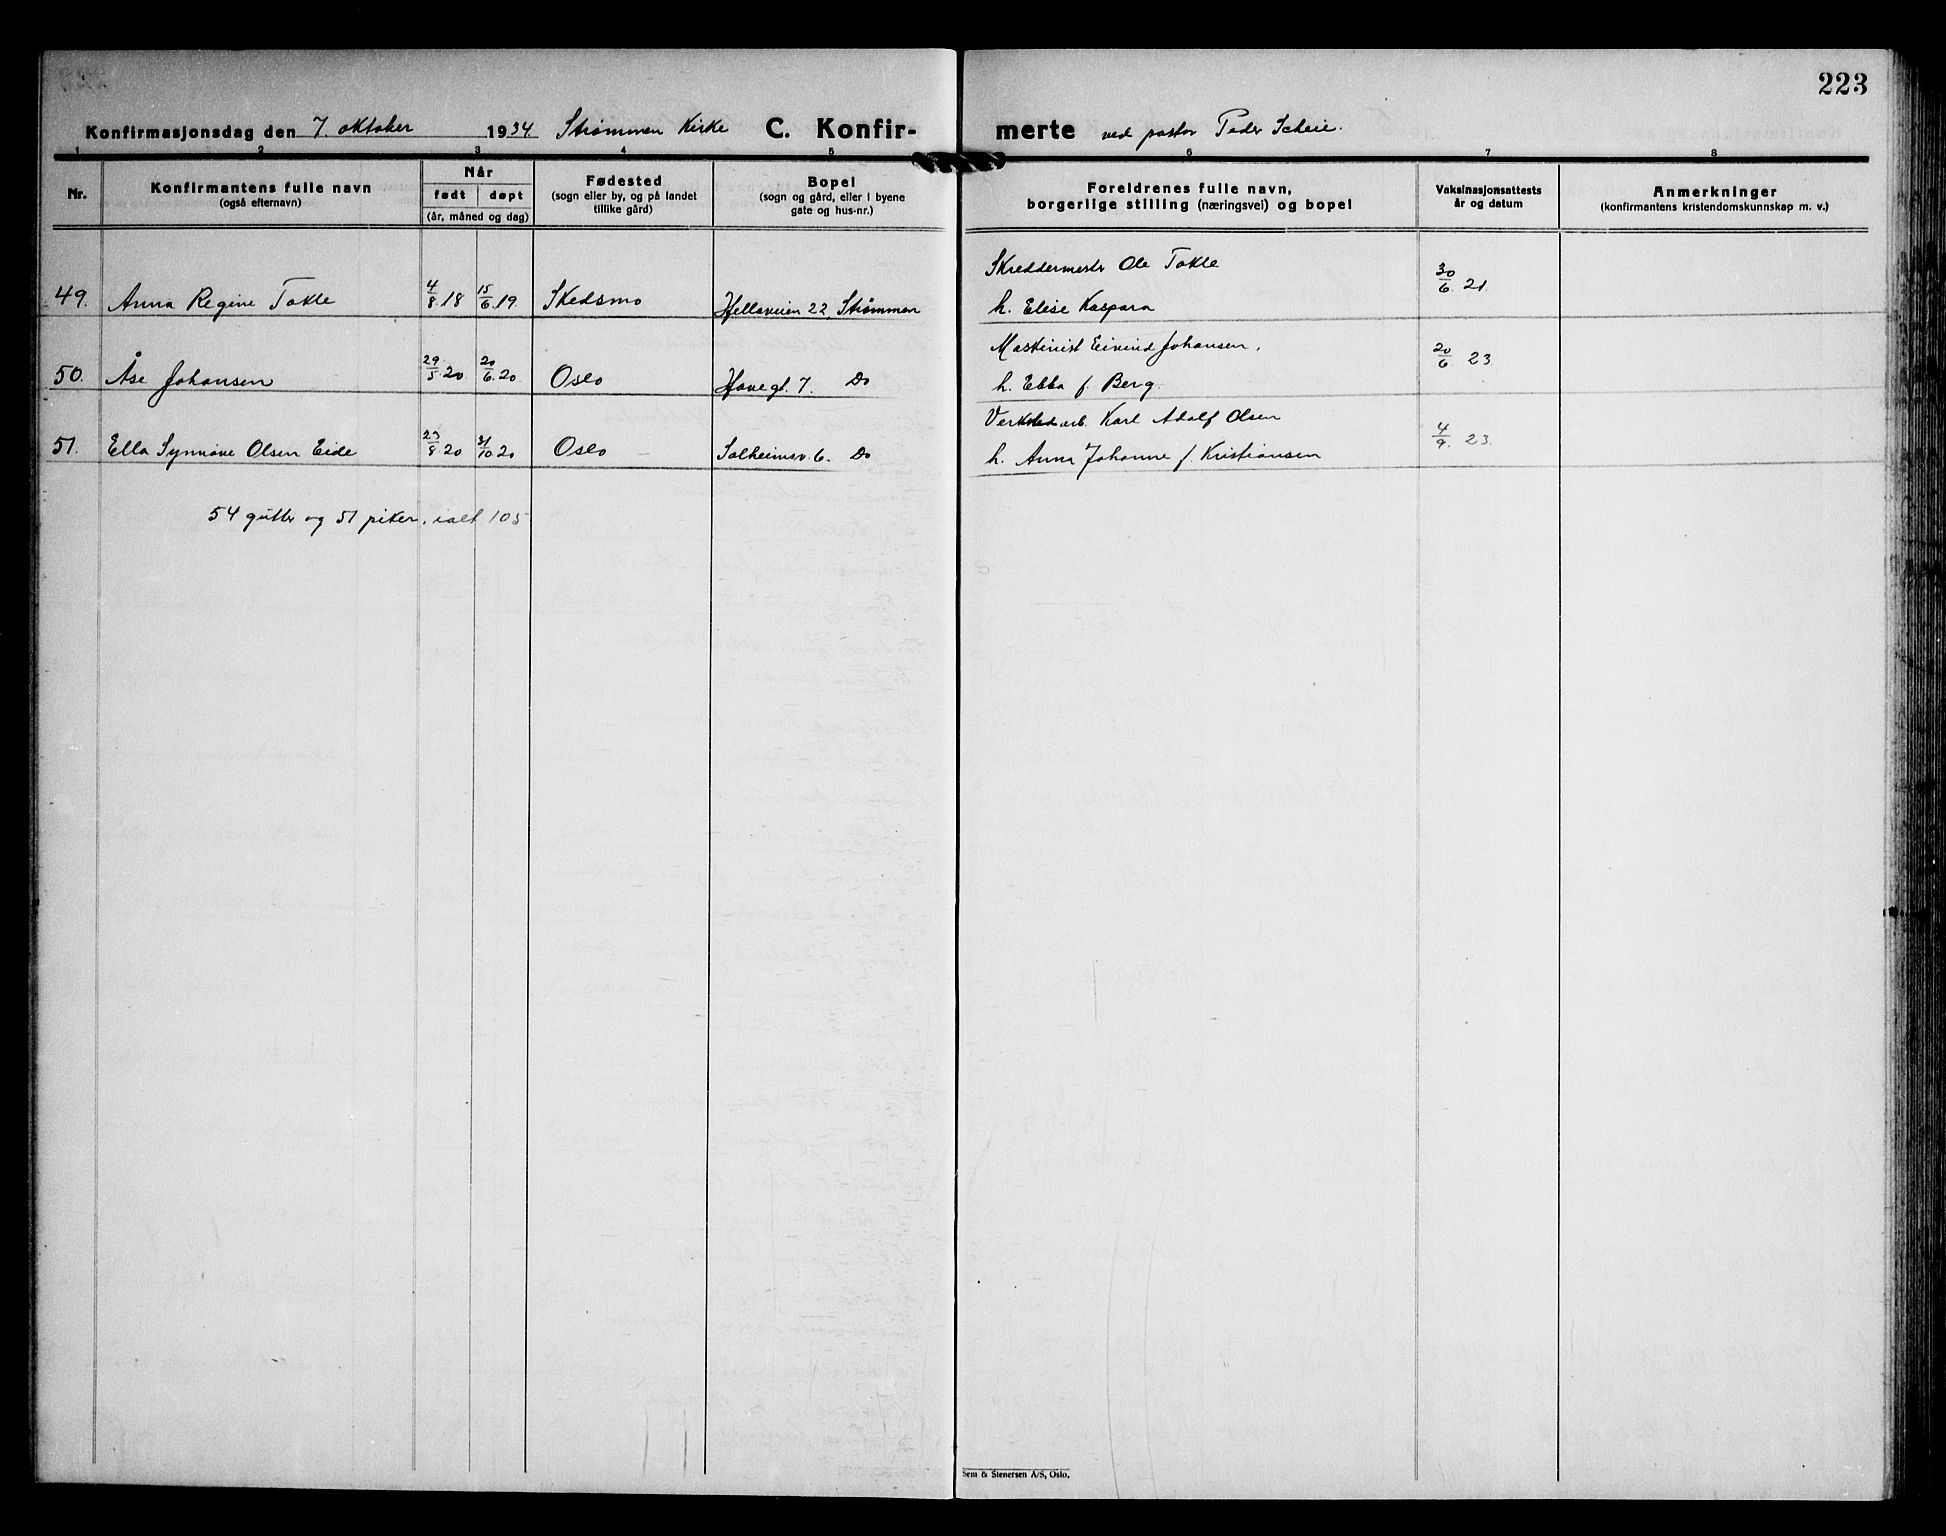 223
Konfirmasjonsdag den 7. oktober 1934 Strømmen Kirke C. Konfir-merte ved pastor Peder Scheie.
1 2 3 4 5 6 7 8
Nr.
Konfirmantens fulle navn
(også efternavn)
Når
født døpt
(år, måned og dag)
Fødested
(sogn eller by, og på landet
tillike gård)
Bopel
(sogn og gård, eller i byene
gate og hus-nr.)
Foreldrenes fulle navn,
borgerlige stilling (næringsvei) og bopel
Vaksinasjonsattests
år og datum
Anmerkninger
(konfirmantens kristendomskunnskap m. v.)
Skreddermestr Ole Tokle
49. Anna Regine Tokle 4/8.18 15/6.19. Skedsmo Hellaveien 22, Strømmen 30/6. 21.
h. Elise Kaspara
Maskinist Eivind Johansen,
50. Åse Johansen 29/5.20 20/6.20 Oslo Havegt. 7. Do 20/6 23
h. Ebba f. Berg.
Verksted arb. Karl Adolf Olsen
51. Ella Synnøve Olsen Eide 23/8.20 31/10 20 Oslo Solheimsv. 6. Do 4/9. 23.
h. Anna Johanne f. Kristiansen
54 gutter og 51 piker, ialt 105
Sem & Stenersen A/S, Oslo.